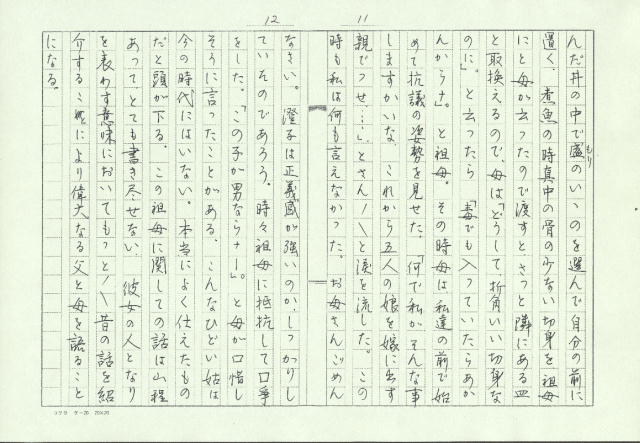 11
んだ丼の中で盛のいゝのを選んで自分の前に
もり
置く、煮魚の時真中の骨の少ない切身を祖母
にと母が云ったので渡すと、さっと隣にある皿
と取換えるので、母はどうして、折角いい切身な
のに」と云ったら「毒でも入っていたらあか
んからナ。」と祖母。その時母は私達の前で始
めて抗議の姿勢を見せた。「何で私がそんな事
しますかいな、これから五人の娘を嫁に出す
親でっせ…」とさん／＼と涙を流した。この
時も私は何も言えなかった。お母さんごめん
12
なさい。澄子は正義感が強いのか、しっかりし
ていたのであろう。時々祖母に抵抗して口争
をした。「この子が男ならナー」。と母が口惜し
そうに言ったことがある、こんなひどい姑は
今の時代にはいない。本当によく仕えたもの
だと頭が下る。この祖母に関しての話は山程
あって、とても書き尽せない、彼女の人となり
を表わす意味においてもっと／＼昔の話を紹
介することにより偉大なる父と母を語ること
になる。
コクヨ ケー20 20×20